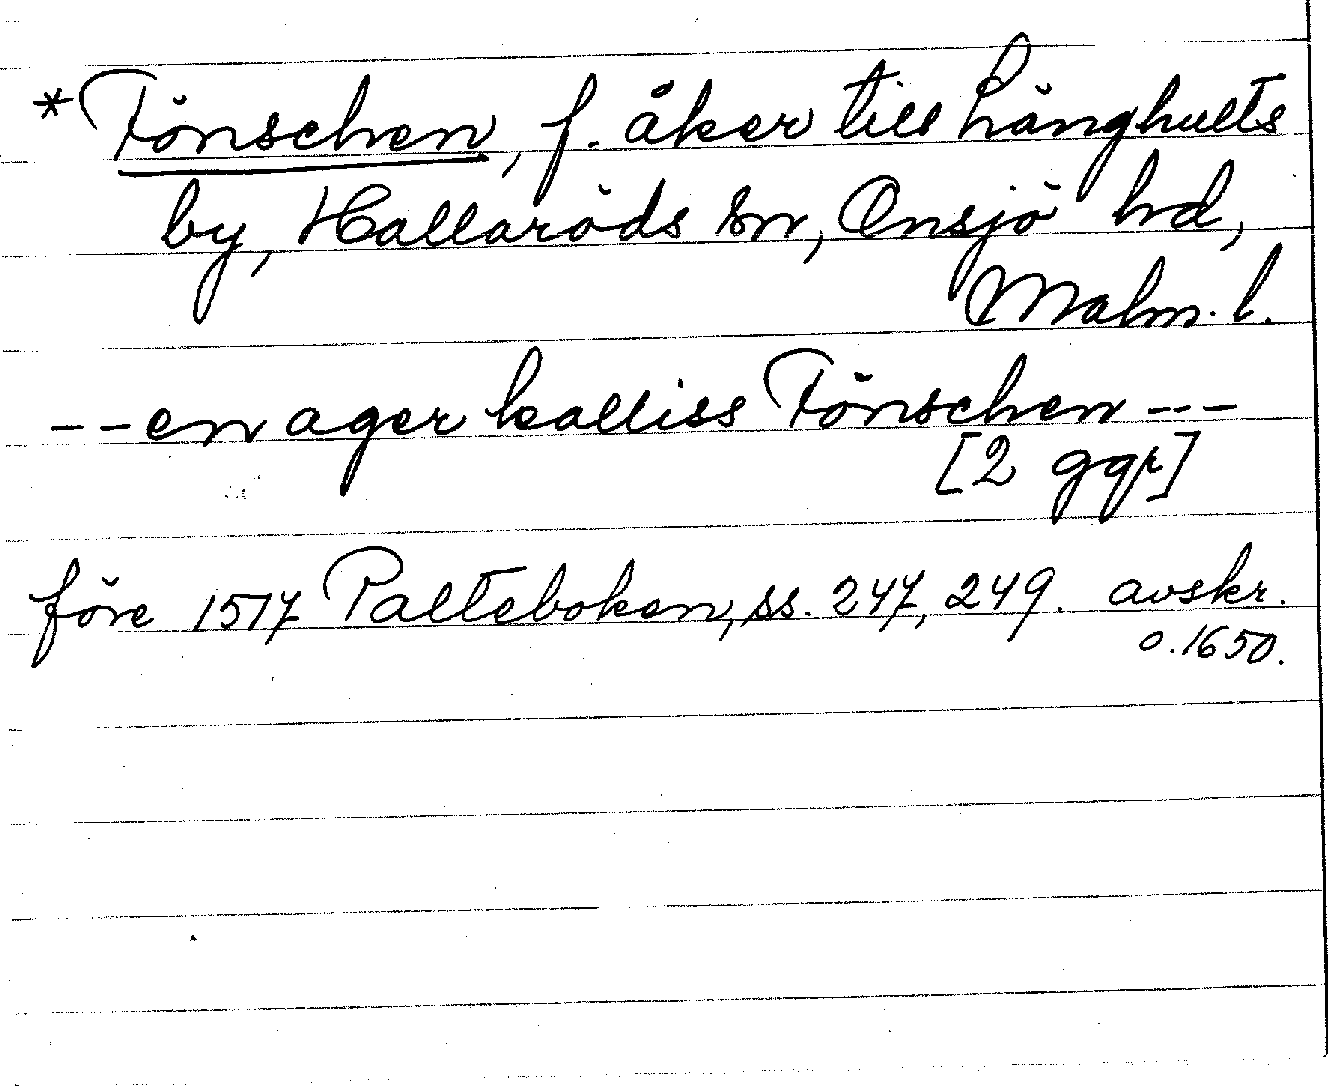 *Tönschen, f. åker till Långhults
by, Hallaröds sn, Onsjö hd,
Malm. l.
--en ager kalliss Tönschen ---
[2 ggr]
före 1517 Palteboken, ss. 247, 249. avskr.
o. 1650.